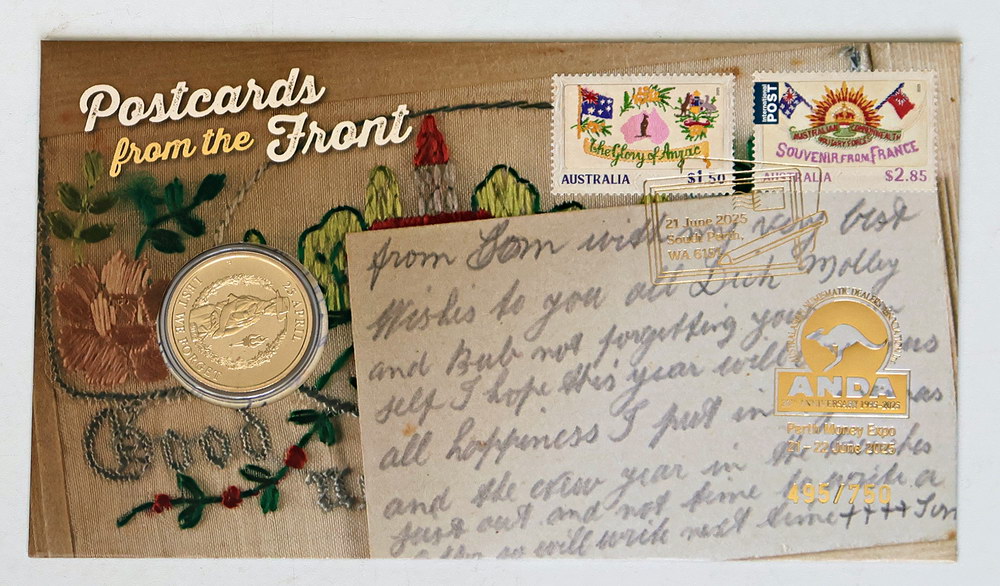 Postcards
from the Front
The Glory of Anzac
AUSTRALIA $1.50
International
POST
AUSTRALIAN COMMONWEALTH
MILITARY FORCES
SOUVENIR FROM FRANCE
AUSTRALIA $2.85
21 June 2025
South Perth,
WA 6151
LEST WE FORGET
25 APRIL
from Tom with my very best
Wishes to you all Dick Molley
and Bub not forgetting your
self I hope this year will
all happiness I put in
and the new year in
just out and not time to write a
so will write next time ++++
ANDA
ANNIVERSARY 1965-2025
Perth Money Expo
21 – 22 June 2025
495/750
Good